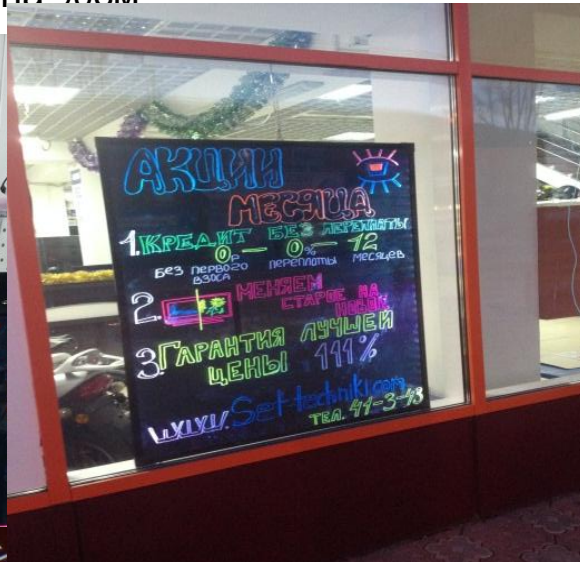 АКЦИИ
МЕСЯЦА
1. КРЕДИТ БЕЗ ПЕРЕПЛАТЫ
0р — 0% — 12
БЕЗ ПЕРВОГО ВЗОСА ПЕРЕПЛАТЫ МЕСЯЦЕВ
2. МЕНЯЕМ
СТАРОЕ НА
НОВОЕ
3. ГАРАНТИЯ ЛУЧШЕЙ
ЦЕНЫ 111%
www.Set-techniki.com
ТЕЛ. 41-3-43